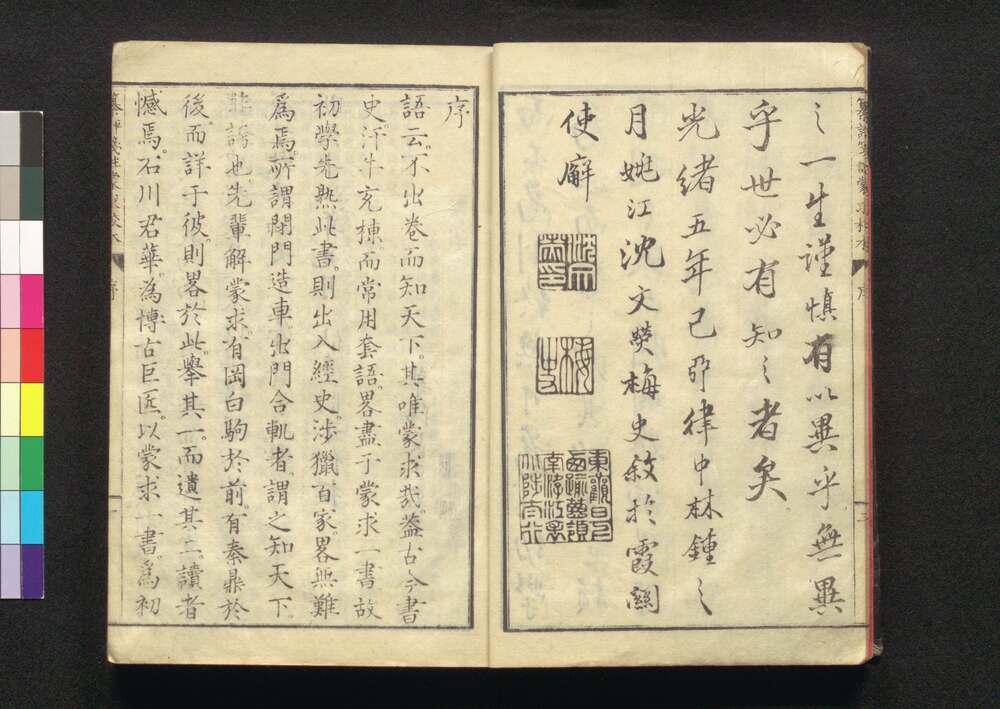 之一生謹慎有以異乎無異
乎世必有知之者矣
光緒五年己卯律中林鍾之
月姚江沈文熒梅史敘於霞關
使廨
梅史
序
語云。不出卷而知天下。其唯蒙求哉。蓋古今書
史。汗牛充棟。而常用套語。畧盡于蒙求一書。故
初學先熟此書。則出入經史。涉獵百家。畧無難
爲焉。所謂閉門造車出門合軌者。謂之知天下。
非誇也。先輩解蒙求。有岡白駒於前。有秦鼎於
後。而詳于彼。則畧於此。舉其一。而遺其二。讀者
憾焉。石川君華。爲博古巨匠。以蒙求一書。爲初
序